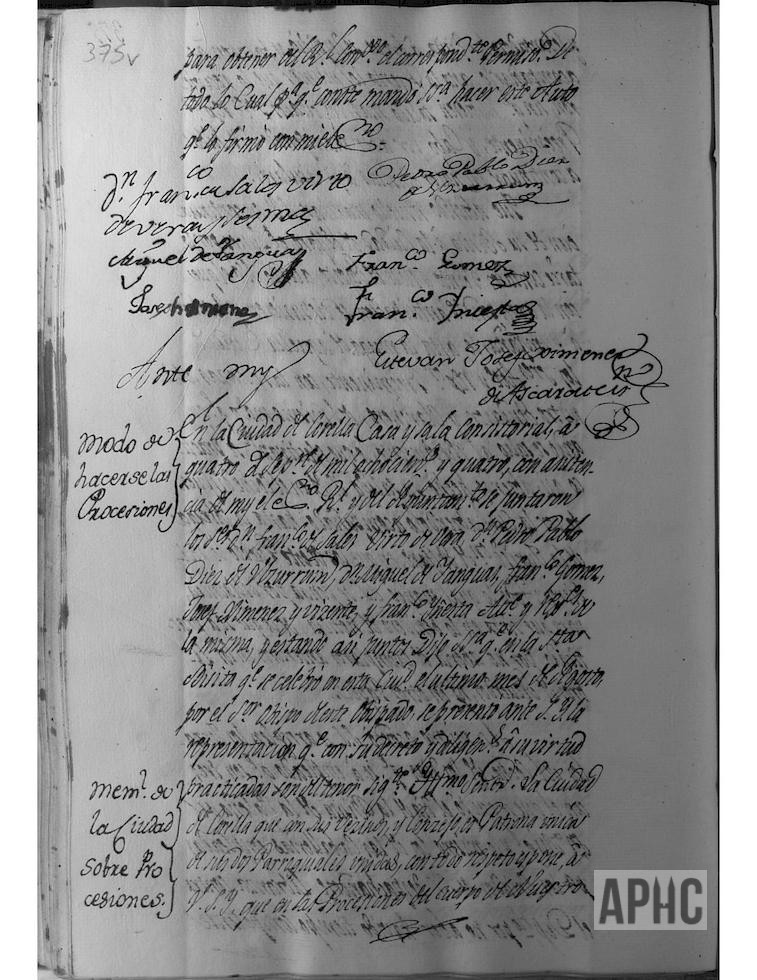 375v
para obtener del Rl Consº el correspondte Permiso. De
todo lo Cual pª qe conste mandó Sria hacer este Auto
qe lo firmó con mi el Esno
Dn Franco Sales Virto
de Vera
Pedro Pablo Diez
de Ulzurrun
Miguel de Tanguas
Franco Gomez
Joseph Ximenez
Franco Huerta
Ante my
Estevan Josef Ximenez
de Ascarateis
Modo de
hacerse las
Procesiones
En la Ciudad de Corella Casa y Sala Consistorial, á
quatro de Sepre de mil ochocientos y quatro, con asisten-
cia de my el Esno Rl y del Ayuntamto se juntaron
los Sres Dn Franco de Sales Virto de Vera, Dn Pedro Pablo
Diez de Ulzurrun, Dn Miguel de Tanguas, Franco Gomez,
Josef Ximenez y Vizente, y Franco Huerta Alce y Rexs de
la misma, y estando asi juntos Dijo Sria qe en la Sta
Visita qe se celebró en esta Ciud el ultimo mes de Agosto,
por el Sor Obispo de este Obispado, se presentó ante S. Y. la
representacion qe con su decreto y diligens á su virtud
practicadas son del tenor sigte Yllmo Señor. La Ciudad
Meml de
la Ciudad
sobre Pro
cesiones.
de Corella que con sus Vecinos, y Concejo, es Patrona unica
de sus dos Parroquiales unidas, con todo respeto expone á
V. S. Y. que en las Procesiones del cuerpo de Nuestro
APHC